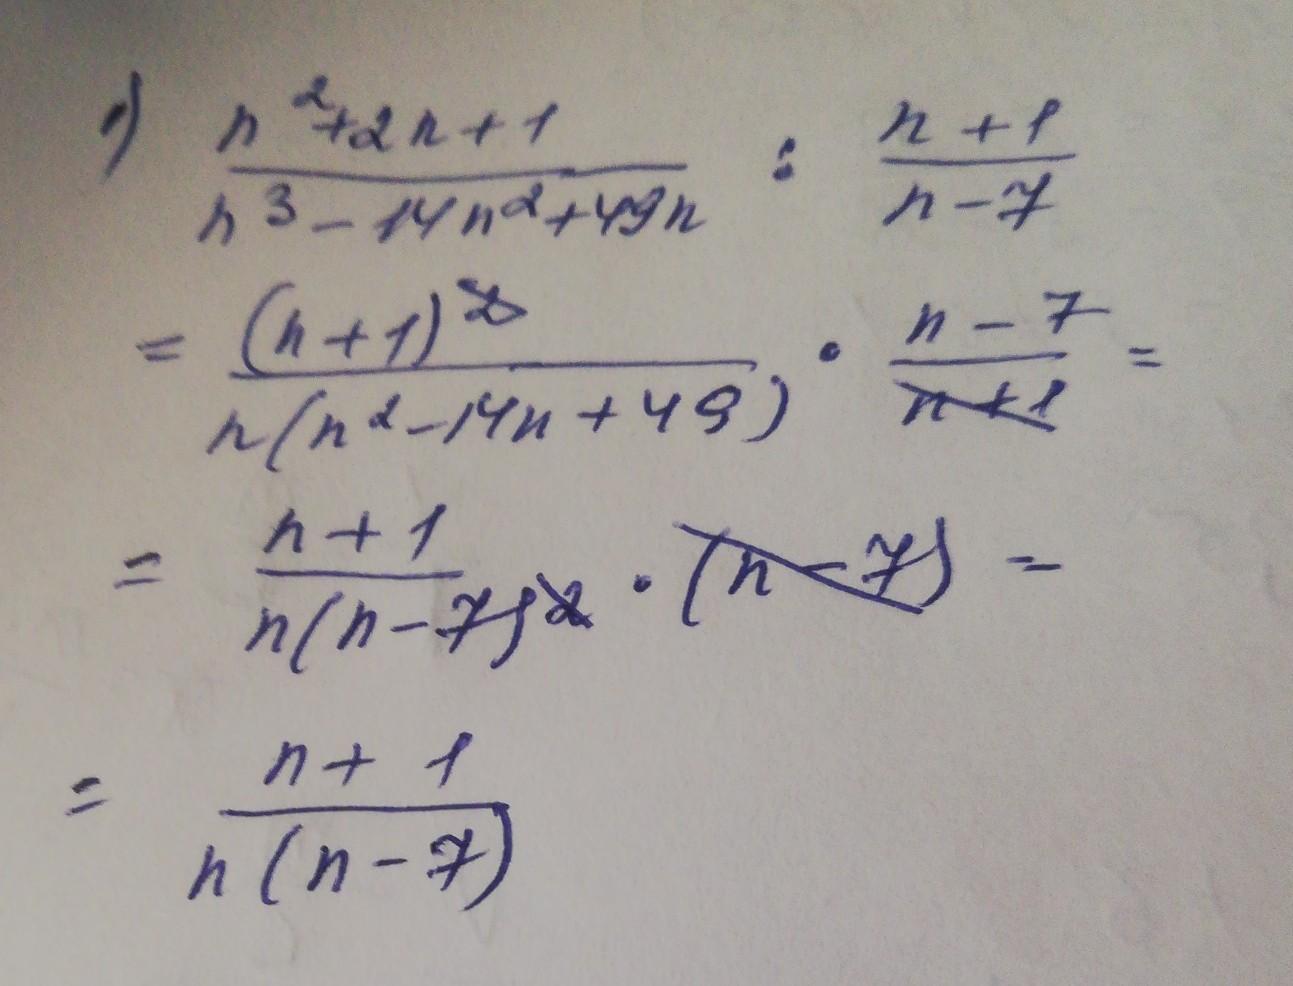 1) n²+2n+1 / n³-14n²+49n : n+1 / n-7
= (n+1)² / n(n²-14n+49) · n-7 / n+1 =
= n+1 / n(n-7)² · (n-7) =
= n+1 / n(n-7)